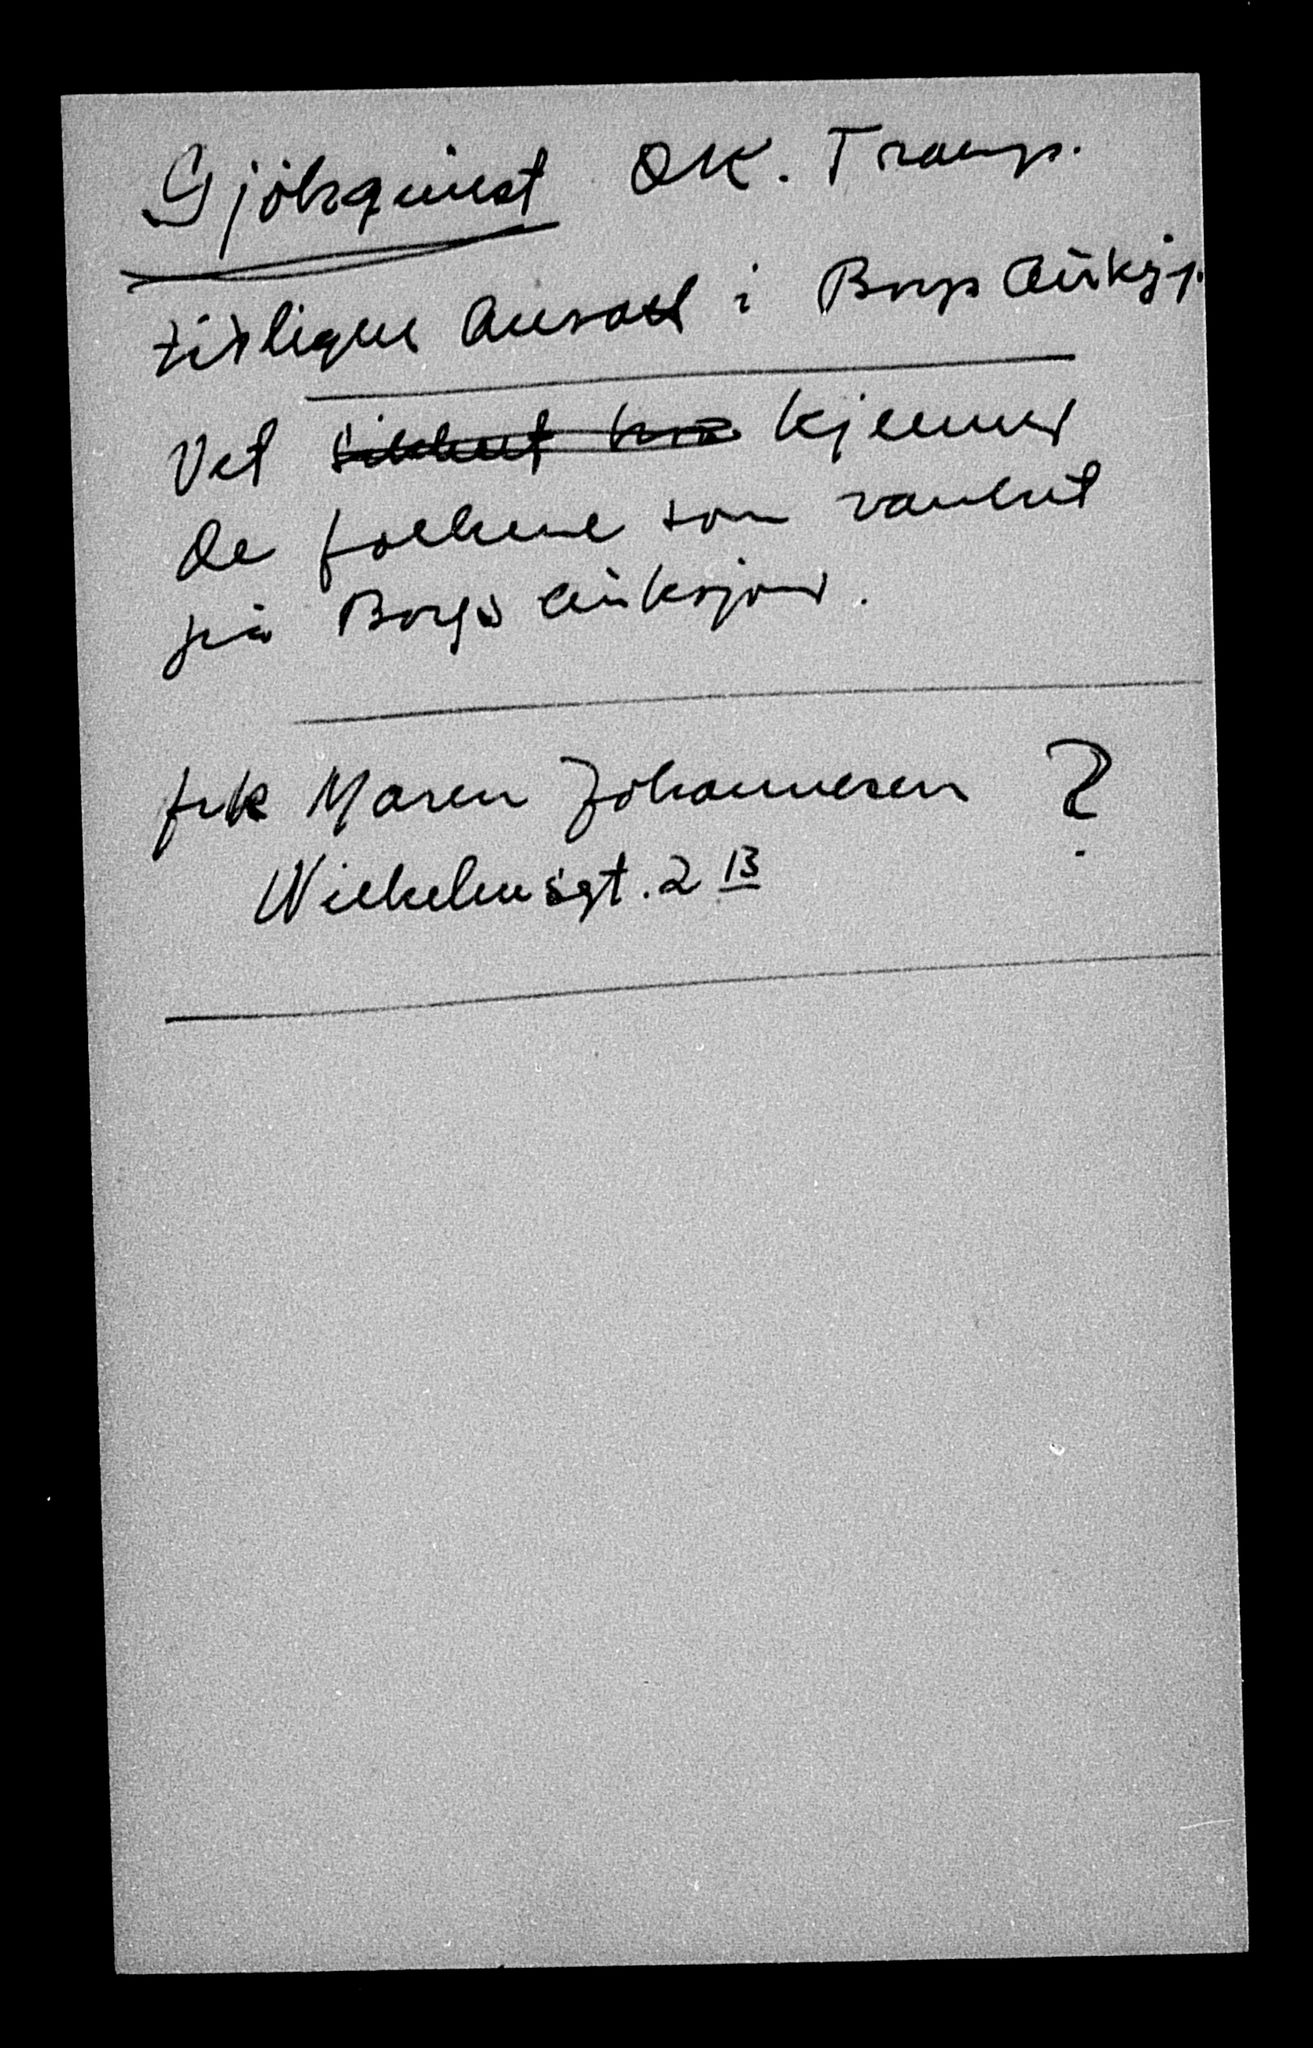 Gjökquist OK. Transp.
tidligere Ansatt i Borgs Auksj.
Vet sikkert hva kjenner
de folkene som vanket
på Borgs Auksjon.
frk Maren Johannesen ?
Wilhelmsgt. 2 B